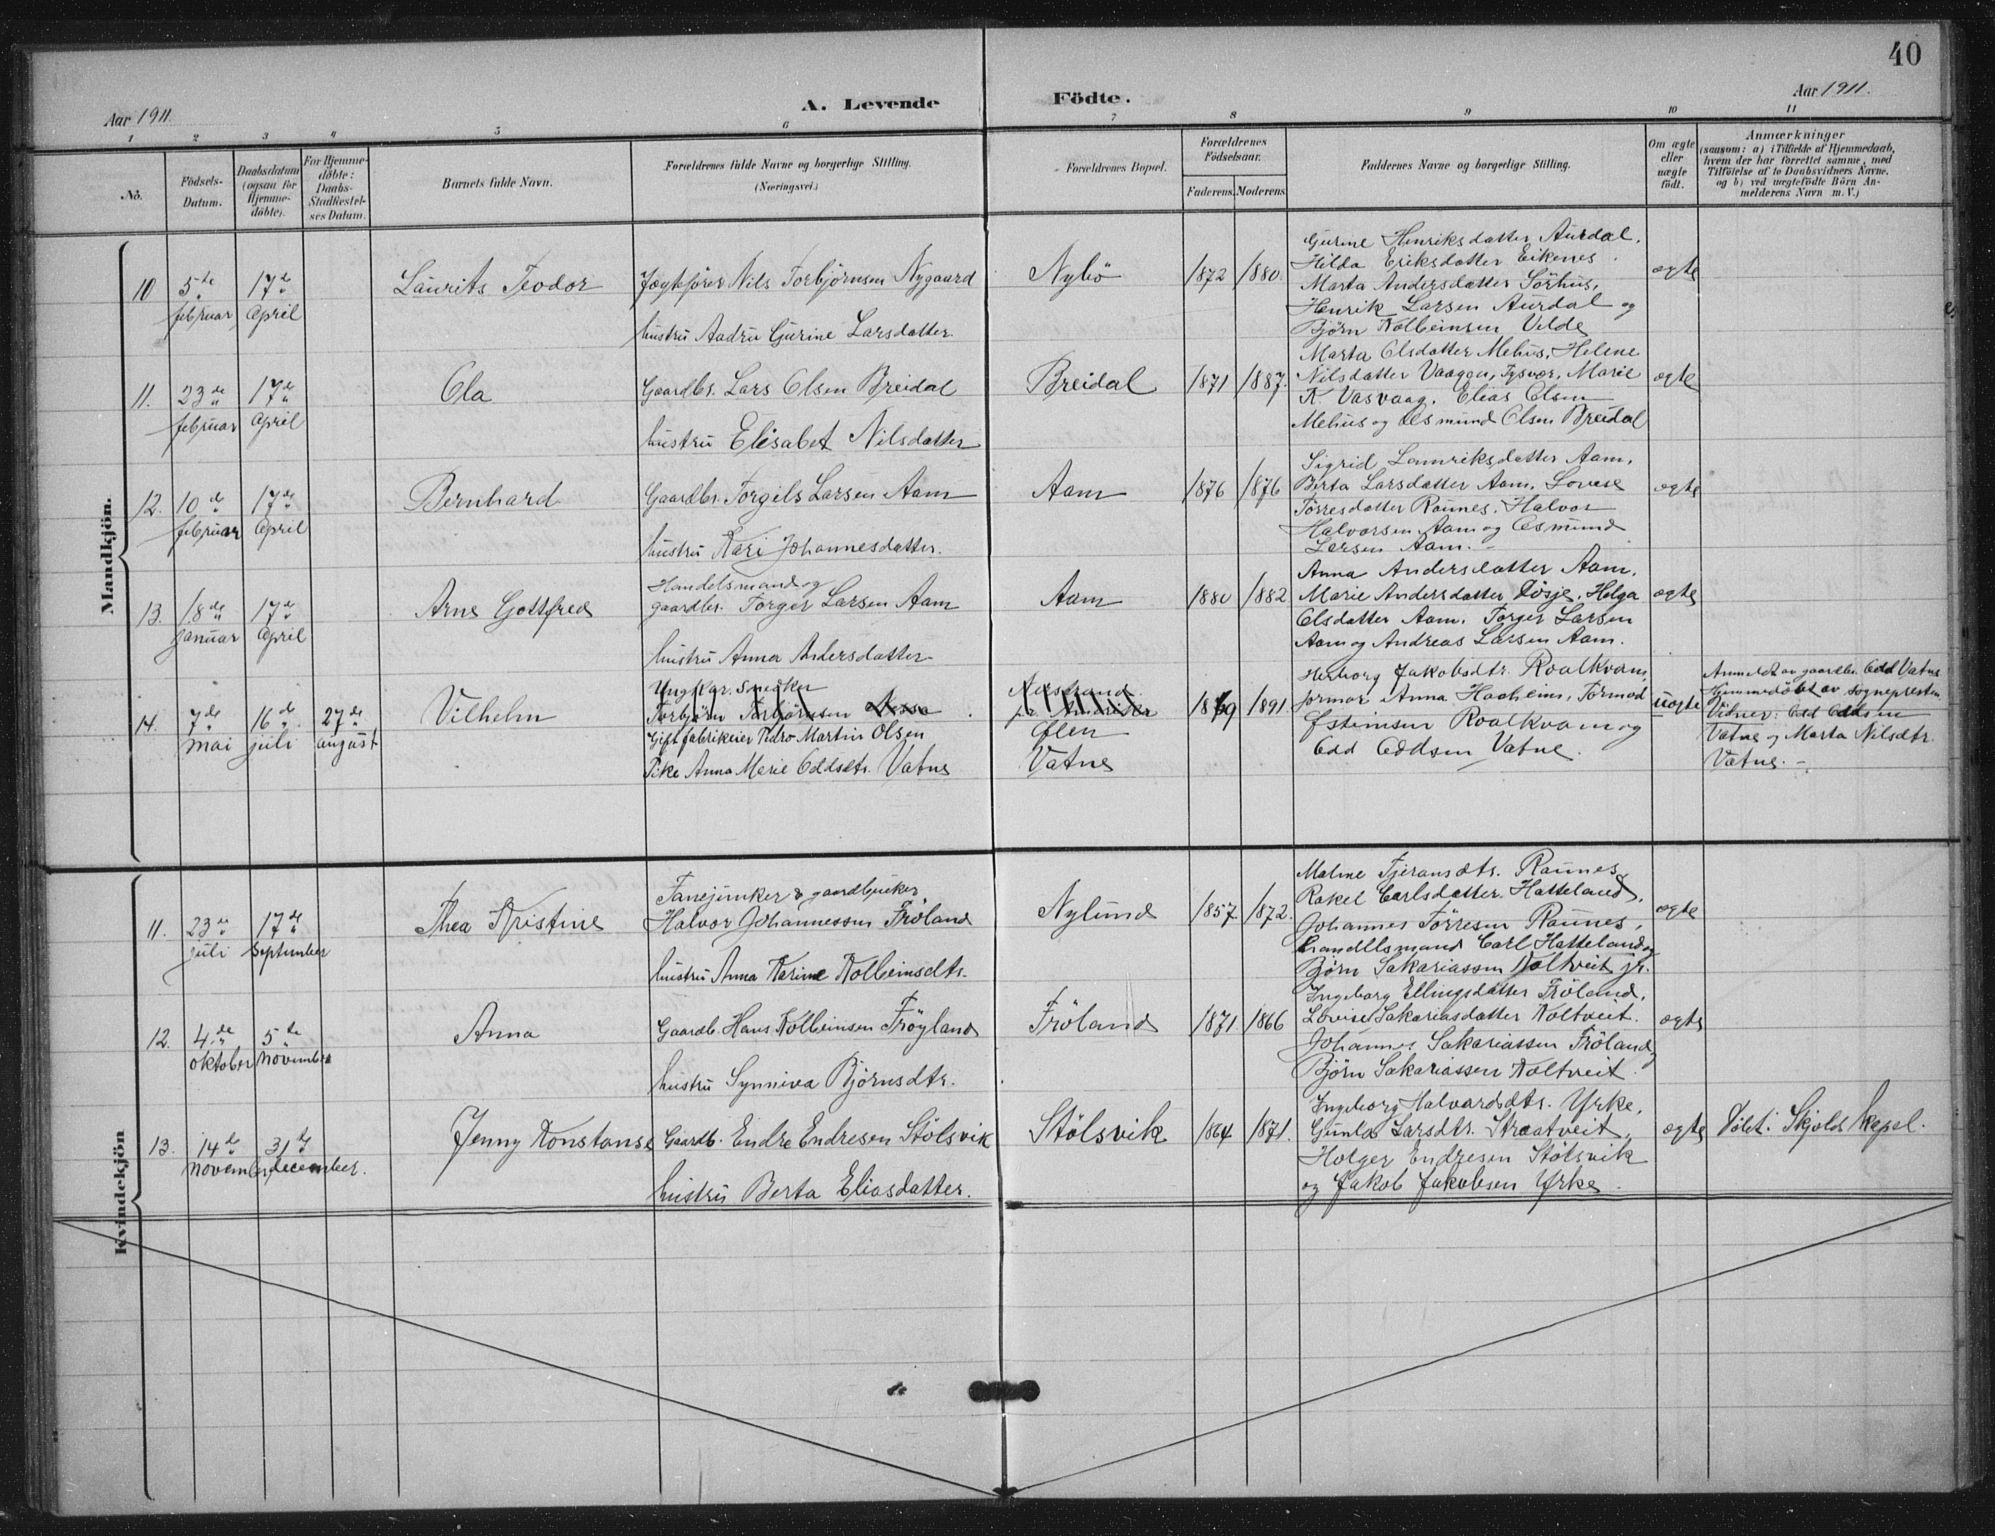 40
Aar 1911.
A. Levende Födte.
Aar 1911.
1 2 3 4 5 6 7 8 9 10 11
No.
Födsels-
Datum.
Daabsdatum
(ogsaa for
Hjemme-
döbte).
For Hjemme-
döbte:
Daabs-
Stadfæstel-
ses Datum.
Barnets fulde Navn.
Forældrenes fulde Navne og borgerlige Stilling.
(Næringsvei.)
Forældrenes Bopæl.
Forældrenes
Födselsaar.
Faderens. Moderens.
Faddernes Navne og borgerlige Stilling.
Om ægte
eller
uægte
født.
Anmærkninger
(saasom: a) i Tilfælde af Hjemmedaab,
hvem der har forrettet samme, med
Tilföielse af to Daabsvidners Navne,
og b) ved uægtefödte Börn An-
melderens Navn m. V.)
Mandkjön.
10 5te februar 17de April
Laurits Teodor
Jægtefører Nils Torbjörnsen Nygaard
hustru Aadru Gurine Larsdatter.
Nybö
1872 1880.
Gurine Henriksdatter Aurdal,
Hilda Eriksdatter Eikenes.
Marta Andersdatter Sörhus,
Henrik Larsen Aurdal og
Björn Kolbeinsen Velde
ægte
11. 23de februar 17de April
Ola
Gaardbr. Lars Olsen Breidal
hustru Elisabet Nilsdatter
Breidal
1871 1887.
Marta Olsdatter Mehus, Helene
Nilsdatter Vaagen, Tysvær, Marie
K. Vasvaag. Elias Olsen
Mehus og Osmund Olsen Breidal
ægte
12. 10de februar 17de April
Bernhard
Gaardbr. Torgils Larsen Aam
hustru Kari Johannesdatter.
Aam
1876 1876
Sigrid Lauriksdatter Aam.
Berta Larsdatter Aam, Lovise
Törresdatter Raunes. Halvor
Halvorsen Aam og Osmund
Larsen Aam.
ægte
13. 18de januar 17de April
Arne Gottfred
Handelsmand og
gaardbr. Torger Larsen Aam
hustru Anna Andersdatter
Aam
1880 1882
Anna Andersdatter Aam.
Marie Andersdatter Løsje, Helga
Olsdatter Aam. Torger Larsen
Aam og Andreas Larsen Aam.
ægte
14. 7de mai 16de juli 27de august
Vilhelm
Ungkar. snedker
Torbjörn Torbjörnsen
Gift fabrikeier Pedro Martin Olsen
Pike Anna Marie Oddsdtr. Vatne
Nerstrand
Ølen
Vatne
1879 1891
Herborg Jakobsdtr. Roalkvam,
jormor Anna Haaheim, Tormod
Østeinsen Roalkvam og
Odd Oddsen Vatne.
uægte
Anmeldt av gaardbr. Odd Vatne
Hjemmedöbt av sognepresten
Vidner: Odd Oddsen
Vatne og Marta Nilsdtr.
Vatne.
Kvindekjön
11. 23de juli 17de september
Thea Kristine
Fanejunker & gaardbruker
Halvor Johannessen Fröland
hustru Anna Karine Kolbeinsdtr.
Nylund
1857 1872.
Malene Tjeransdtr. Raunes,
Rakel Carlsdatter Hatteland,
Johannes Törresen Raunes,
handelsmand Carl Hatteland og
Björn Sakariassen Koltveit jr.
ægte
12. 4de oktober 5te november
Anna
Gaardb. Hans Kolbeinsen Fröyland
hustru Synniva Björnsdtr.
Fröland
1871 1866
Ingeborg Ellingsdatter Fröland.
Lovise Sakariasdatter Koltveit.
Johannes Sakariassen Fröland,
Björn Sakariassen Koltveit.
ægte
13. 14de november 31te december.
Jenny Konstanse
Gaardb. Endre Endresen Stölsvik
hustru Berta Eliasdatter.
Stölsvik
1864 1871.
Ingeborg Halvardsdtr. Yrke,
Gunla Larsdtr. Straatveit,
Holger Endresen Stölsvik
og Jakob Jakobsen Yrke.
ægte
Døbt i Skjolds kapel.